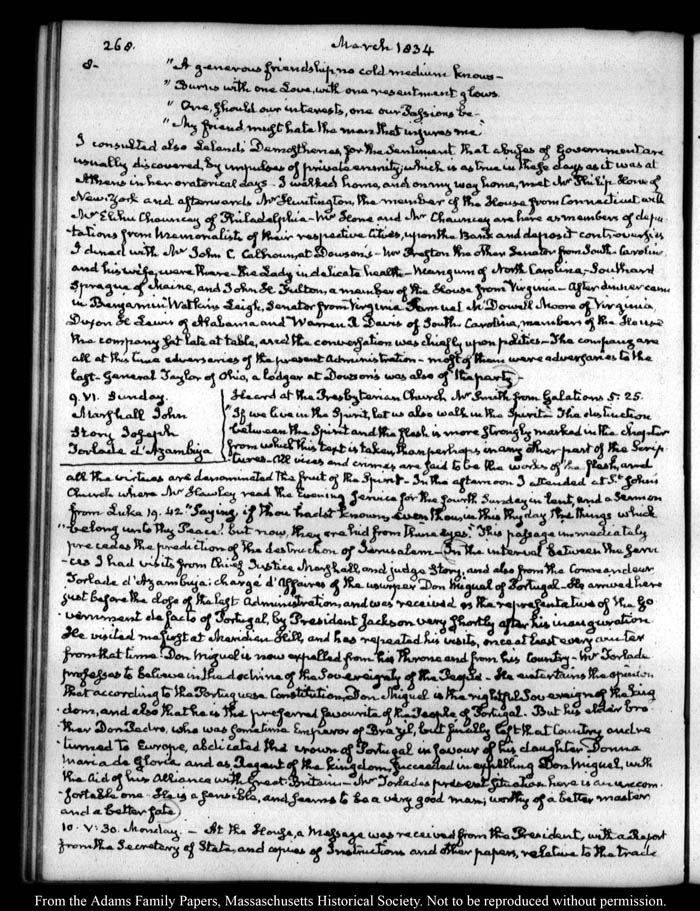 268.
March 1834
8-
"A generous friendship no cold medium knows-
"Burns with one Love, with one resentment glows
"One, should our interests, one our Passions be-
"My friend must hate the man that injures me."
I consulted also Leland's Demosthenes, for the Sentiment that abuses of Government are
usually discovered, by impulses of private enmity; which is as true in these days as it was at
Athens in her oratorical days. I walked home, and on my way home, met Mr Philip Hone of
New-York and afterwards Mr Huntington, the member of the House from Connecticut with
Mr Elihu Chauncey of Philadelphia- Mr Hone and Mr Chauncey are here as members of depu
-tations from Memorialists of their respective Cities, upon the Bank and deposit controversies
I dined with Mr John C. Calhoun, at Dowson's- Mr Preston the other Senator from South-Carolina
and his wife, were there- the Lady in delicate health- Mangum of North Carolina,- Southard
Sprague of Maine, and John H. Fulton, a member of the House from Virginia- After dinner came
in Benjamin Watkins Leigh, Senator from Virginia Samuel McDowell Moore of Virginia,
Dixon H Lewis of Alabama, and Warren R Davis of South Carolina, members of the House
the company sat late at table, and the conversation was chiefly upon politics- The company are
all at this time adversaries of the present Administration- most of them were adversaries to the
last- General Taylor of Ohio, a lodger at Dowson's was also of the party
9. VI. Sunday.
Marshall John
Story Joseph
Torlade d'Azambuja
Heard at the Presbyterian Church Mr Smith from Galations 5. 25.
"If we live in the Spirit, let us also walk in the Spirit- The distinction
between the Spirit and the flesh is more strongly marked in the chapter
from which this text is taken than perhaps in any other part of the Scrip
-tures- All vices and crimes are said to be the works of the flesh, and
all the virtues are denominated the fruit of the Spirit- In the afternoon I attended at St. John's
Church where Mr Hawley read the Evening Service for the fourth Sunday in Lent, and a Sermon
from Luke 19. 42. "Saying, if thou hadst known, even thou, in this thy day the things which
"belong unto thy Peace! but now, they are hid from thine eyes." This passage immediately
precedes the prediction of the destruction of Jerusalem- In the interval between the Servi
-ces I had visits from Chief Justice Marshall, and judge Story, and also from the Commandeur
Torlade d'Azambuja: chargé d'Affaires of the usurper Don Miguel of Portugal- He arrived here
just before the close of the last Administration, and was received as the representative of the Go
vernment de facto of Portugal, by President Jackson very shortly after his inauguration
He visited me first at Meridian Hill, and has repeated his visits, once at least every winter
from that time. Don Miguel is now expelled from his throne and from his Country- Mr Torlade
professes to believe in the doctrine of the Sovereignty of the People- He entertains the opinion
that according to the Portuguese Constitution, Don Miguel is the rightful Sovereign of the King
-dom, and also that he is the preferred favourite of the People of Portugal. But his elder bro
-ther Don Pedro, who was sometime Emperor of Brazil, but finally left that Country and re
turned to Europe, abdicated the crown of Portugal in favour of his daughter Donna
Maria da Gloria and as Regent of the kingdom, succeeded in expelling Don Miguel, with
the aid of his Alliance with Great-Britain- Mr Torlade's present situation here is an uncom
-fortable one- He is a sensible, and seems to be a very good man; worthy of a better master
and a better fate
10. V: 30. Monday. - At the House, a Message was received from the President, with a Report
from the Secretary of State, and copies of Instructions and other papers, relative to the trade
From the Adams Family Papers, Massachusetts Historical Society. Not to be reproduced without permission.